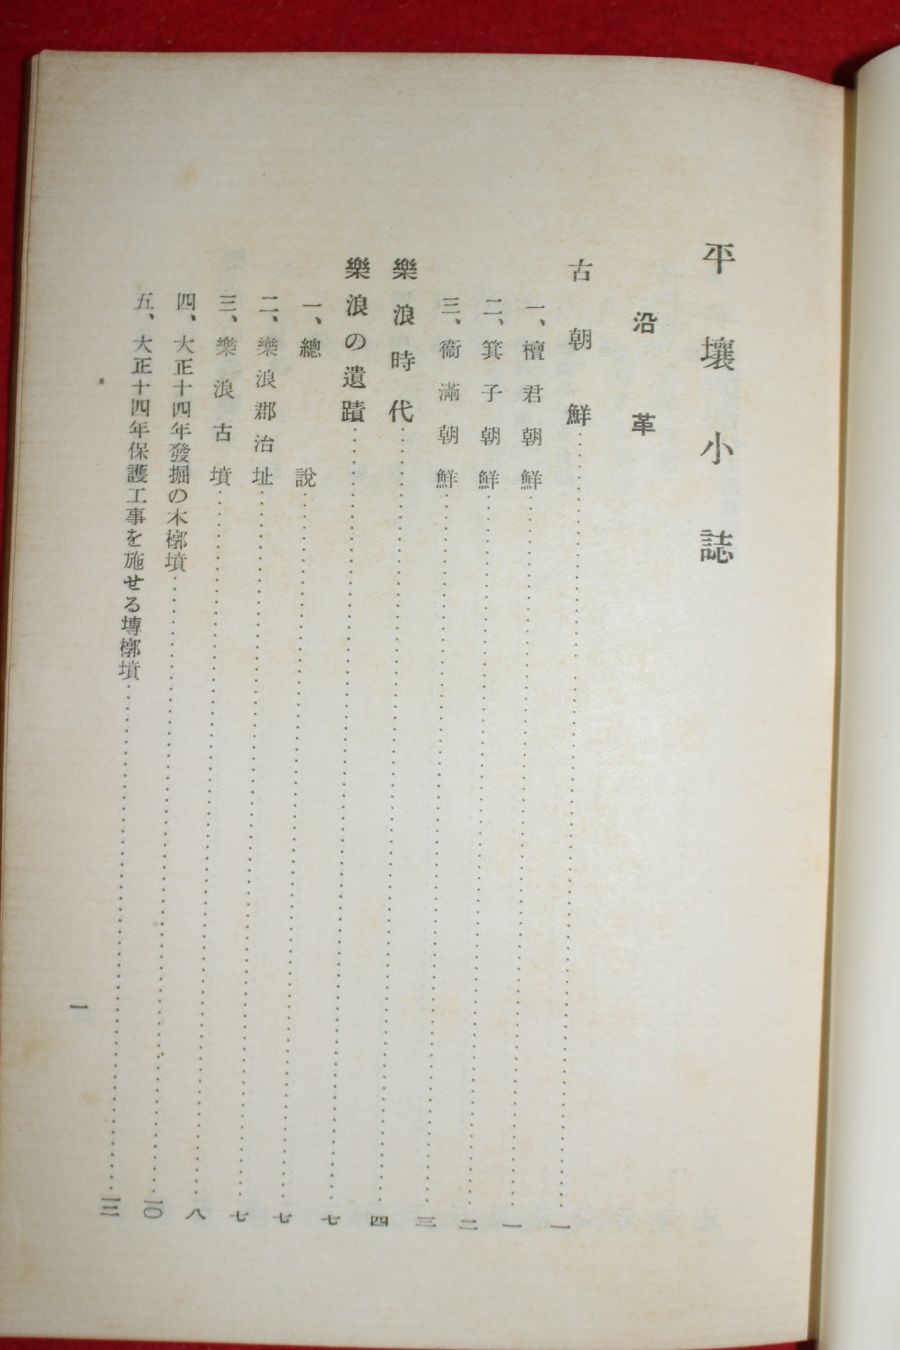 平壤小誌
沿革
古朝鮮……一
一、檀君朝鮮……一
二、箕子朝鮮……二
三、衞滿朝鮮……三
樂浪時代……四
樂浪の遺蹟……七
一、總說……七
二、樂浪郡治址……七
三、樂浪古墳……八
四、大正十四年發掘の木槨墳……一〇
五、大正十四年保護工事を施せる塼槨墳……一三
一